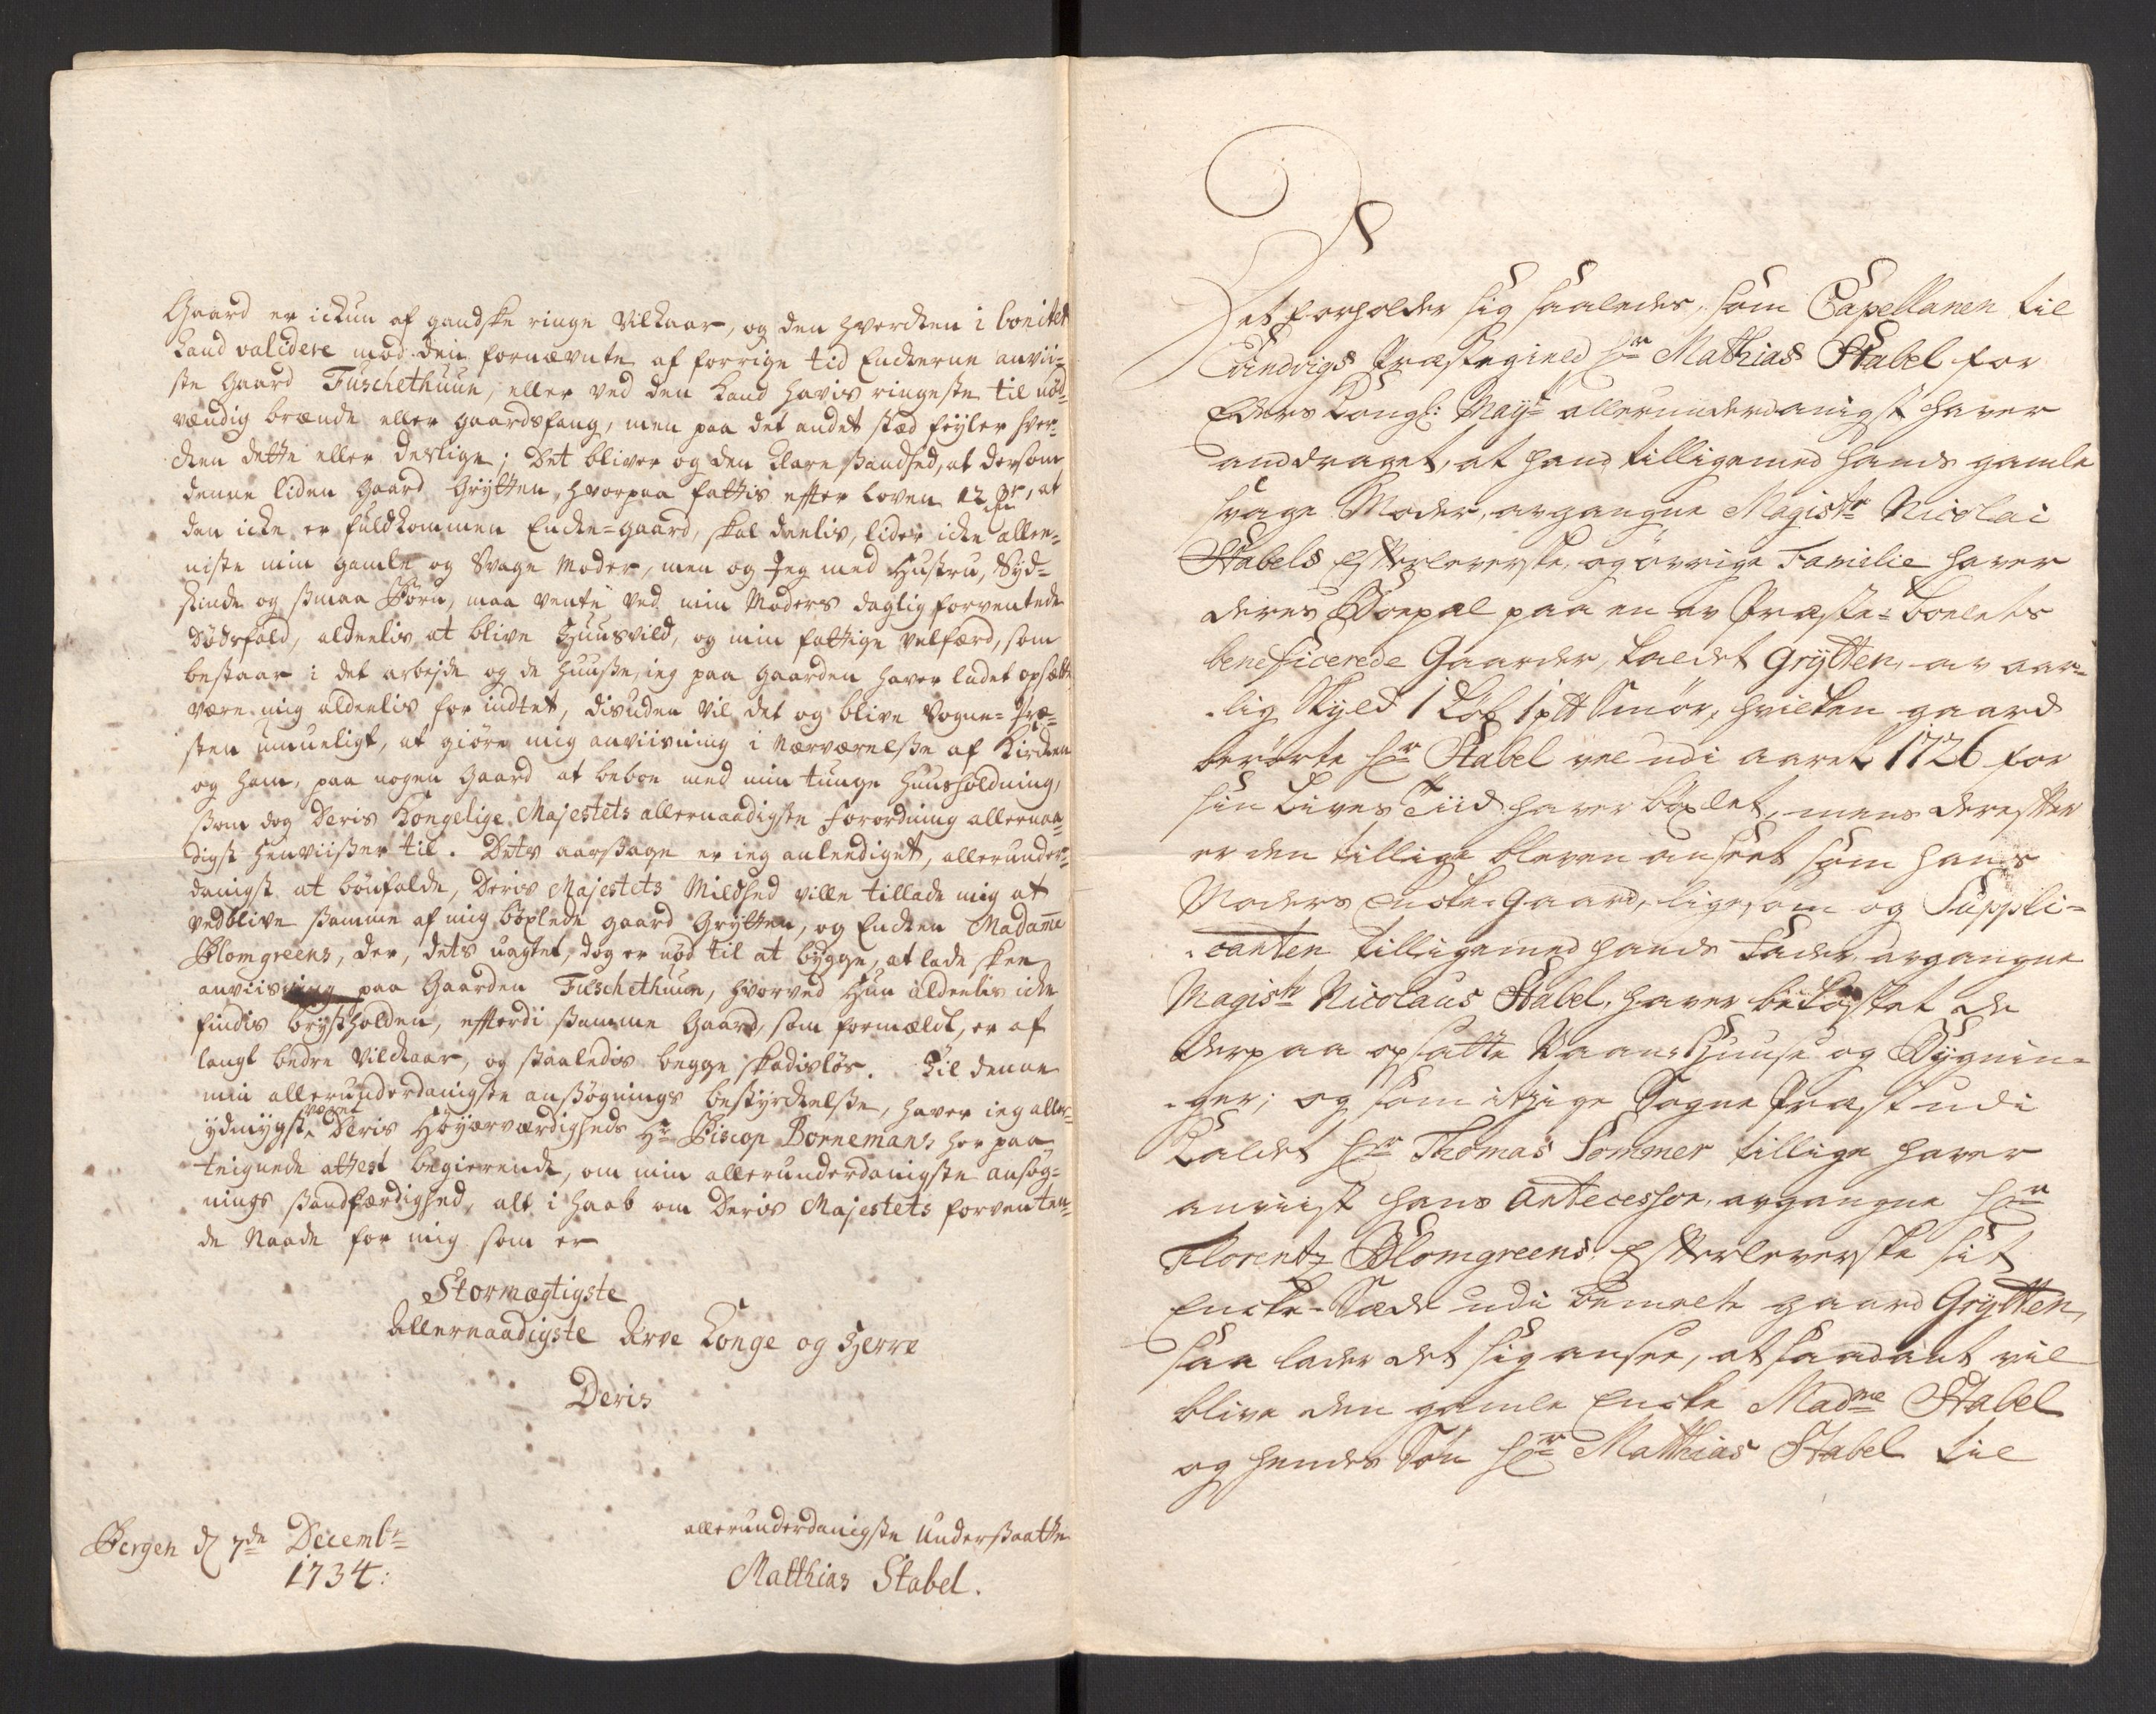 Gaard er ickun af gandske ringe Vilkaar, og den hvercken i bonitet
kand validere mod den fornævnte af forrige tid Enckerne anvii-
ste Gaard Fuschethuun, eller ved den kand havis ringeste til nød-
vændig brænde eller gaardsfang, men paa det andet stæd feyler hver-
cken dette eller deslige; Det bliver og den klare Sandhed, at dersom
denne liden Gaard Grytten, hvorpaa fattis effter Loven 12
den icke er fuldkommen Encke-gaard, skal deelis, lider icke alle-
niste min gamle og Svage Moder, men og Jeg med Hustru, Syd-
skinde og smaa Børn, maa vente ved min Moders daglig forventede
Dødsfald, aldeelis at blive Huusvild, og min fattige velfærd, som
bestaar i det arbejde og de Huuse, ieg paa gaarden haver ladet opsætte
være mig aldeelis for indtet, disuden vil det og blive Sogne-Præ-
sten umueligt, at giøre mig anviisning i Nærværelse af Kircken
og ham, paa nogen Gaard at beboe med min tunge Huusholdning,
som dog Deris Kongelige Majestets allernaadigste forordning allernaa-
digst henviisser til. Dets aarsage er ieg anlediget, allerunder-
danigst at bønfalde, Deris Majestets Mildhed ville tillade mig at
vedblive samme af mig bøxlede gaard Grytten, og Encken Madame
Blomgreens, der, dets uagtet, dog er nød til at bygge, at lade skee
anviisning paa Gaarden Fuschethuun, hvorved Hun aldeelis icke
findis brystholden, effterdi samme Gaard, som formældt, er af
langt bedre Vilckaar, og saaledis begge skadisløs. Til denne
min allerunderdanigste ansøgnings bestyrckelse, haver ieg aller-
ydmygst været Deris Høyærværdigheds Hr Biscop Bornemans her paa
teignede attest begierende, om min allerunderdanigste ansøg-
nings sandfærdighed, alt i haab om Deris Majestets forventen-
de Naade for mig som er
Stormægtigste
Allernaadigste Arve Konge og Herre
Deris
allerunderdanigste Undersaatte
Bergen d 7de Decembr
1734:
Matthias Stabel.
Det forholder sig saaledes, som Capellanen til
Præstegield Hr Mathias Stabel for
Eders Kongl: Mayt allerunderdanigst haver
anddraget, at hand tilligemed hands gamle
svage Moder, avgangne Magistr Nicolai
Stabels Effterleverske, og øvrige Familie haver
deres Boepæl paa en av Præste-boelets
beneficerede Gaarder, kaldet Grytten, av aar-
lig Skyld 1 Løb 1 p# Smør, hvilken gaard
berørte Hr Stabel vel udi aaret 1726 for
sin Lives Tiid haver bøxlet, mens dereffter
er den tillige bleven anseet som hans
Moders Encke-Gaard, ligesom og Suppli-
canten tilligemed hands Fader, avgangne
Magistr Nicolaus Stabel, haver bekostet de
derpaa opsatte Vaane-Huuse og Bygnin-
ger; og som itzige Sogne Præst udi
Kaldet Hr Thomas Sommer tillige haver
anviist hans Antecessor, avgangne Hr
Florentz Blomgreens Effterleverske sit
Encke-Sæde udi bemelte gaard Grytten,
saa lader det sig ansee, at saadant vil
blive den gamle Encke Madme Stabel
og hendes Søn Hr Matthias Stabel til